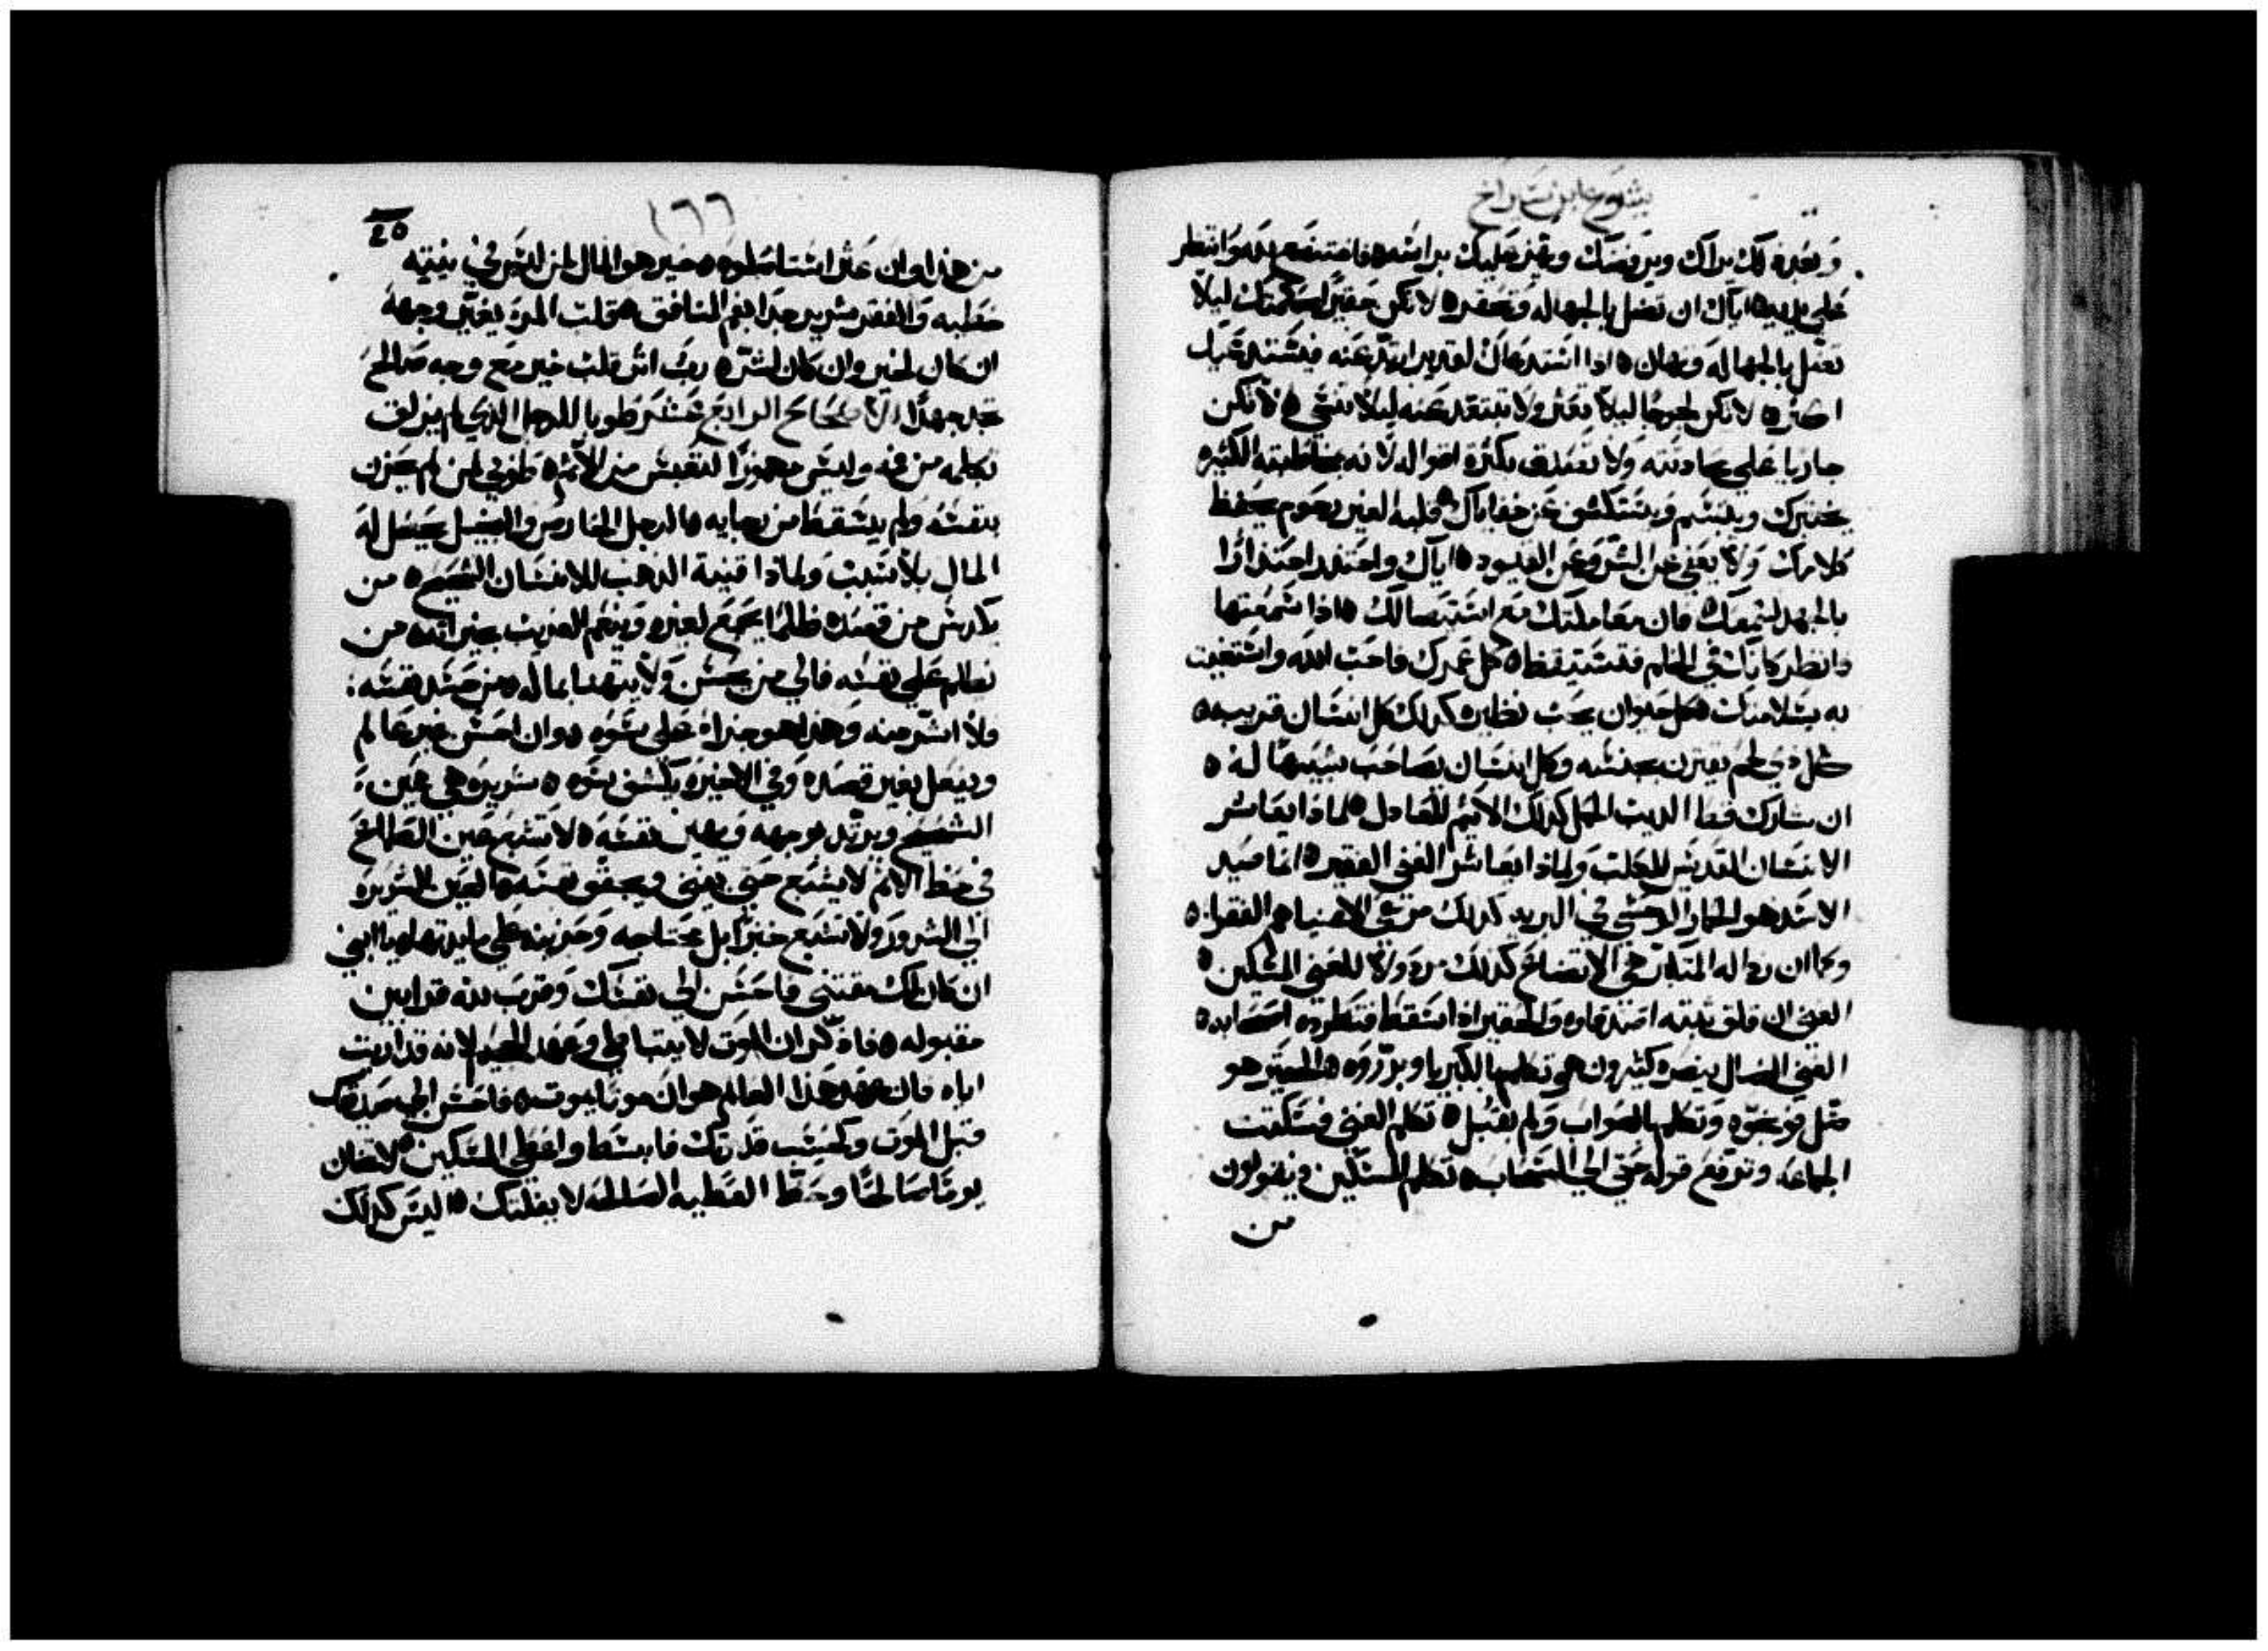 يشوع ابن سيراخ
وبعده لك يراك ويرفضك ويهز عليك براسه فاتضع لله وانتظر
علي يديه اياك ان تضل بالجهاله وتحقر لا تكن حقيرا بحكمتك ليلا
تضل بالجهاله وتهان اذا استدعاك القدير ابتد عنه فيشتد
اكثر لا تكن لجوجا ليلا تعثر ولا تبتعد عنه ليلا تنسي لا تكن
جاريا علي محادثته ولا تصدق بكثرة اقواله لانه بمخاطبته الكثيره
يختبرك ويتبسم ويستكشف عن خفاياك قلبه الغير رحوم يحفظ
كلامك ولا يعفي عن الشر وعن القيود اياك واحتذر احتذارا
بالجهد لسمعك فان معاملتك مع استيصالك اذا سمعتها
فانظر كانك في الحلم فتستيقظ كل عمرك فاحب الله واستغيث
به بسلامتك كل حيوان يحب نظيره كذلك كل انسان قريبه
كل ذي لحم يقترن بجنسه وكل انسان يصاحب شبيها له
ان شارك قط الديب الحمل كذلك الاثيم للعادل لماذا يعاشر
الانسان القديس للكلب ولماذا يعاشر الغني الفقير انما صيد
الاسد هو الحمار الوحشي في البريه كذلك مرعي الاغنيا هم الفقرا
وكما ان رداله المتكبر هي الاتضاع كذلك مردولا للغني المسكين
الغني ان قلق تثبته اصدقاوه والحقير اذا سقط فتطرده اصحابه
الغني الضال ينصره كثيرون هو تكلم بالكبريا وبرروه الحقير هو
ضل فوبخوه وتكلم بالصواب ولم يقبل تكلم الغني فسكتت
الجماعه وترفع قوله حتي الي السحاب تكلم المسكين فيقولون
من
١٦٦
25
من هذا وان عثر استاصلوه خير هو المال لمن ليس في نيته
خطيه والفقر شرير جدا بفم المنافق قلب المرء يغير وجهه
ان كان لخير وان كان لشر اثر قلب خير مع وجه صالح
تجد جهدا الاصحاح الرابع عشر طوبا للرجل الذي لم يزلف
بكلمه من فمه وليس مهموزا لنفس من الاثم طوبي لمن لم يحزن
بنفسه ولم يسقط من رجايه الرجل الحارص والبخيل يحصل له
المال بلا سبب ولماذا قنية الذهب للانسان الشحيح من
يكدس من قصده ظلما يجمع لغيره وينعم الغريب بخيراته من
نظالم علي نفسه فالي من يحسن ولا يتهنا بماله من حسد نفسه
فلا اشر منه وهذا هو جزاه علي سوه وان احسن غير عالم
ويفعل بغير قصده وفي الاخير يكشف سوه شريره هي عين
الشحيح ويرتد بوجهه ويهين نفسه لا تشبع عين الطامع
في حظ الاثم لا يشبع حتي يفني ويجفف نفسه العين الشريره
الي الشرور ولا تشبع خبزا بل محتاجه وحزينه علي مايدتها يا ابني
ان كان لك مقتني فاحسن الي نفسك وقرب لله قرابين
مقبوله فاذكر ان الموت لا يتباطي وعهد الجحيم لانه قد اريت
اياه فان عهد هذا العالم هو ان موتا يموت فاحسن الي صديقك
قبل الموت وكحسب قدرتك فابسط واعطي المسكين لا تهان
يوما صالحا وحظ العطيه الصالحه لا يفلتك اليس كذلك